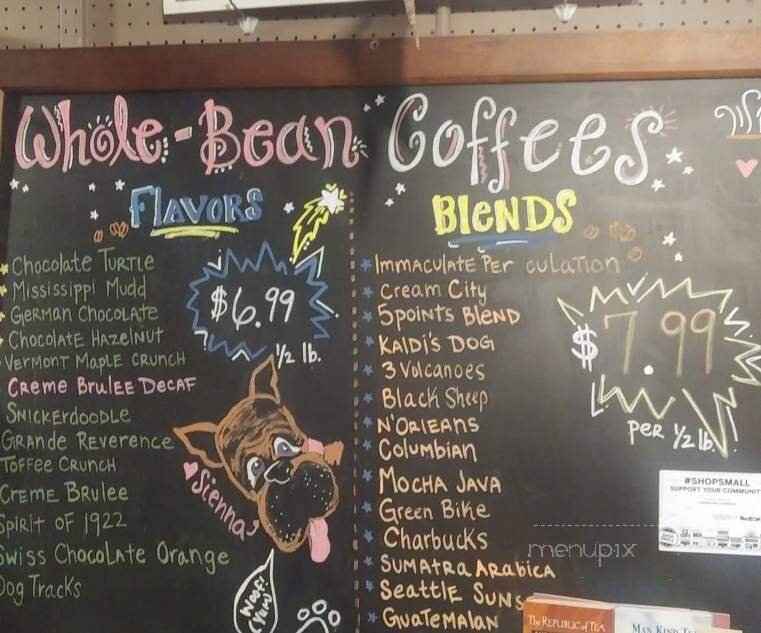 Whole-Bean Coffees
FLAVORS
Chocolate TURTLE
Mississippi Mudd
GERMAN CHOCOLATE
Chocolate HAZELNUT
VERMONT MAPLE CRUNCH
CREME BRULEE DECAF
SNICKERDOODLE
GRANDE REVERENCE
TOFFEE CRUNCH
CREME BRULEE
SPIRIT OF 1922
Swiss ChocoLate Orange
Dog Tracks
$6.99
1/2 lb.
Sienna
WOOF!
(YUM)
BLENDS
IMMACULATE PER CULATION
CREAM CITY
5POINTS BLEND
KALDI'S DOG
3 Volcanoes
Black Sheep
N'ORLEANS
Columbian
MOCHA JAVA
Green Bike
Charbucks
SUMATRA ARABICA
SEATTLE SUNS
GUATEMALAN
$7.99
PER 1/2 lb.
#SHOPSMALL
SUPPORT YOUR COMMUNIT
menupix
THE REPUBLIC of TEA
MAN KIND TE